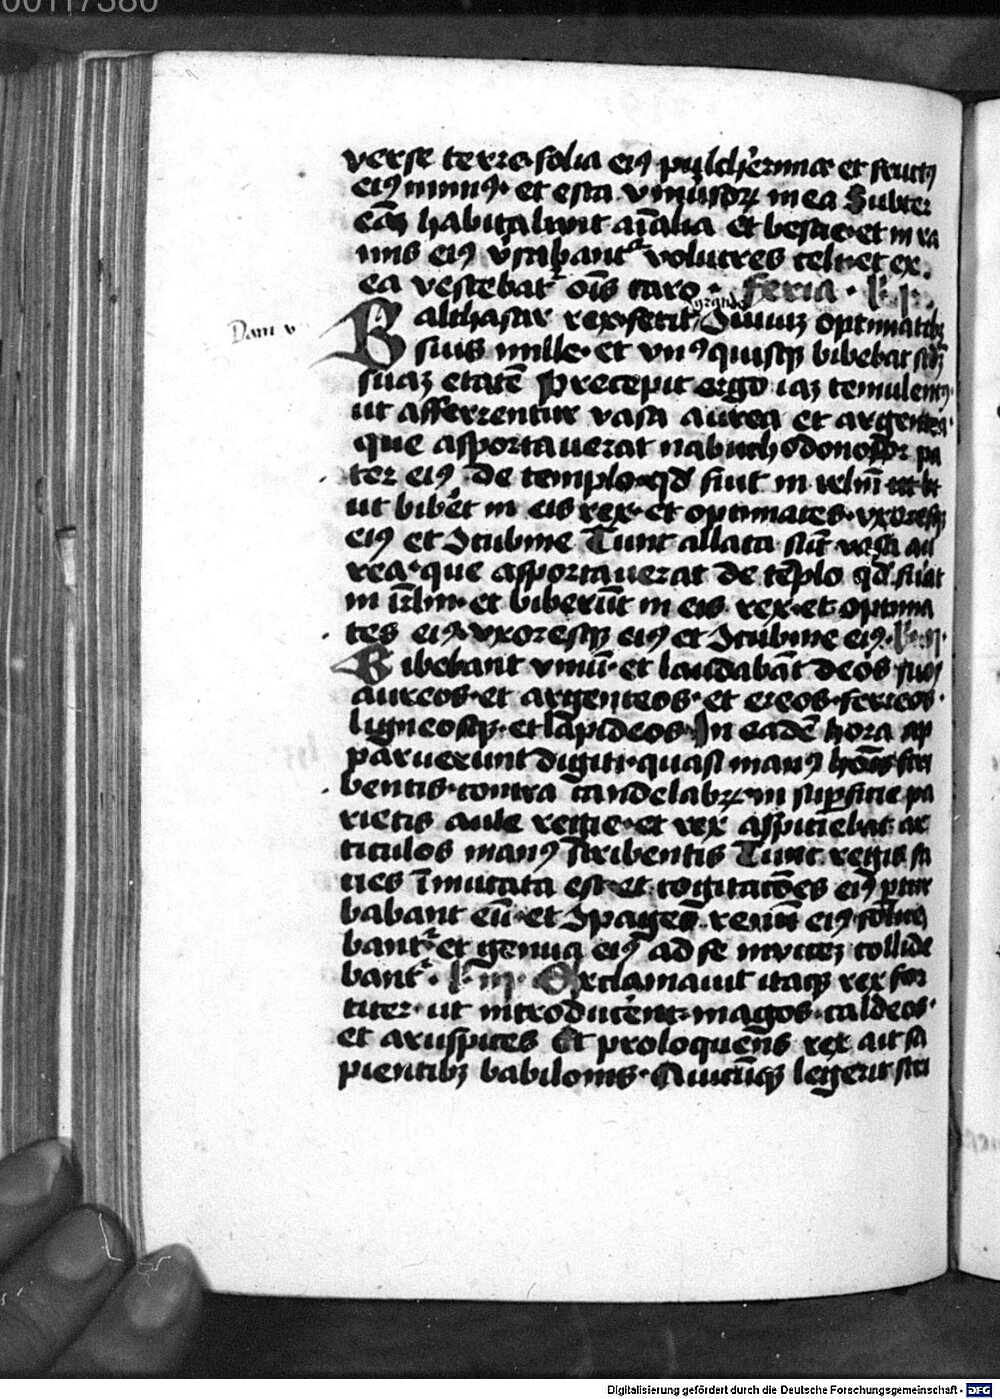 00117380
verse terre folia eiꝰ pulcherrima et fructꝰ
eiꝰ nimiꝰ et esca vniúsorꝝ in ea Subter
eā habitabant aīalia et bestie et in ra
mis eiꝰ ꝯsabant᷑ volucres celi et ex
ea vescebat᷑ oīs caro feria
Dani v
Balthasar rex fecit grande ꝯuiuiū optimatibꝫ
suis mille et vnꝰquisqꝫ bibebat scd̄ꝫ
suaꝫ etatē Precepit ergo iaꝫ temulentꝰ
ut afferrentur vasa aurea et argentea
que asportauerat nabuchodonosor pa
ter eiꝰ de templo qd̄ fuit in
ut bibēt in eis rex et optimates vxoresqꝫ
eiꝰ et ꝯcubine Tunc allata sūt vasa au
rea que asportauerat de tēplo qd̄ fuāt
in irlm̄ et biberūt in eis rex et optima
tes eiꝰ vxoresqꝫ eiꝰ et ꝯcubine eiꝰ
Bibebant vinū et laudabāt deos suos
aureos et argenteos et ereos ferreos
ligneosqꝫ et lapideos In eadē hora ap
paruerunt digiti quasi manꝰ hoīs scri
bentis contra candelabrꝝ in suꝑficie pa
rietis aule regie et rex aspiciebat ar
ticulos manꝰ scribentis Tunc regis fa
cies īmutata est et cogitacōes eiꝰ ꝯtur
babant eū et ꝯpages renū eiꝰ solue
bant᷑ et genua eiꝰ ad se inviceꝫ collide
bant᷑ Exclamauit itaqꝫ rex for
titer ut introducēnt magos caldeos
et aruspices Et proloquens rex ait sa
pientibꝫ babilonis Quicūqꝫ legerit scri
Digitalisierung gefördert durch die Deutsche Forschungsgemeinschaft - DFG